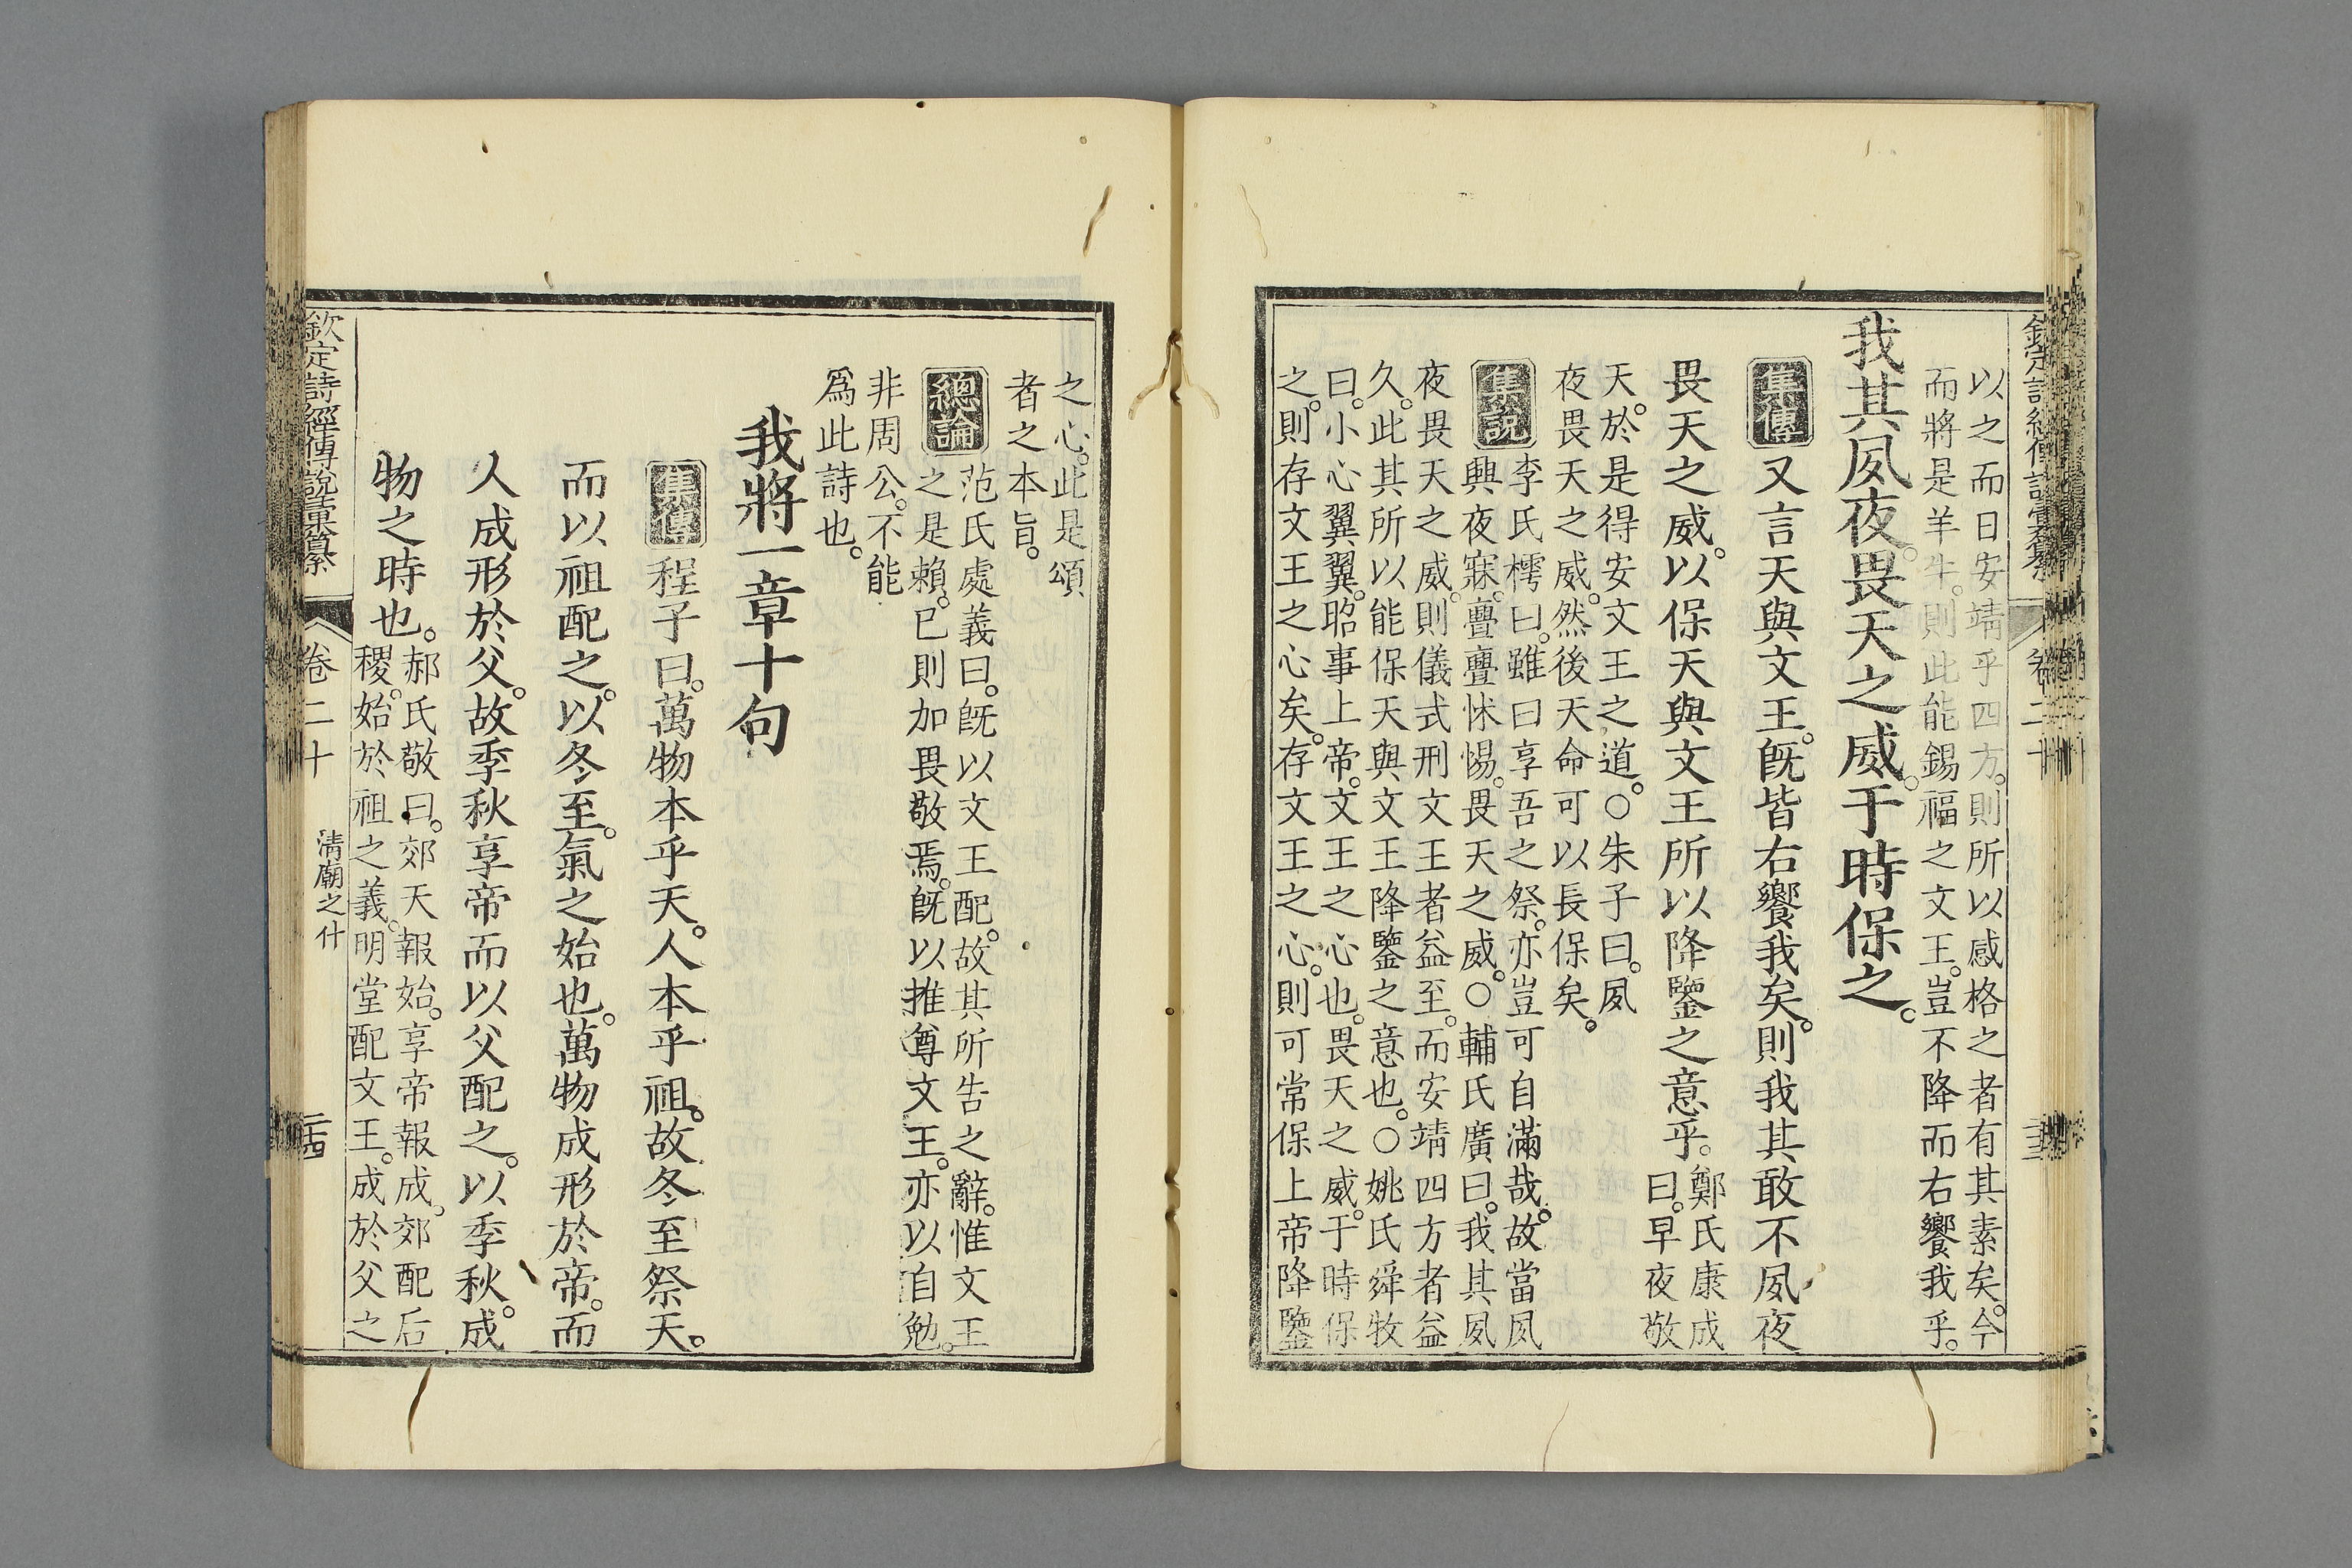 欽定詩經傳說彙纂
卷二十
以之而日安靖乎四方。則所以感格之者有其素矣。今
而將是羊牛。則此能錫福之文王。豈不降而右饗我乎。
我其夙夜。畏天之威。于時保之。
集傳
又言天與文王。旣皆右饗我矣。則我其敢不夙夜
畏天之威。以保天與文王所以降鑒之意乎。
鄭氏康成
曰。早夜敬
天。於是得安文王之道。○朱子曰。夙
夜畏天之威。然後天命可以長保矣。
集說
李氏樗曰。雖曰享吾之祭。亦豈可自滿哉。故當夙
興夜寐。亹亹怵惕。畏天之威。○輔氏廣曰。我其夙
夜畏天之威。則儀式刑文王者益至。而安靖四方者益
久。此其所以能保天與文王降鑒之意也。○姚氏舜牧
曰。小心翼翼。昭事上帝。文王之心也。畏天之威。于時保
之。則存文王之心矣。存文王之心。則可常保上帝降鑒
之心。此是頌
者之本旨。
總論
范氏處義曰。旣以文王配。故其所告之辭。惟文王
之是賴。已則加畏敬焉。旣以推尊文王。亦以自勉。
非周公。不能
爲此詩也。
我將一章十句
集傳
程子曰。萬物本乎天。人本乎祖。故冬至祭天。
而以祖配之。以冬至。氣之始也。萬物成形於帝。而
人成形於父。故季秋享帝而以父配之。以季秋。成
物之時也。
郝氏敬曰。郊天報始。享帝報成。郊配后
稷。始於祖之義。明堂配文王。成於父之
欽定詩經傳說彙纂
卷二十
淸廟之什
二十四